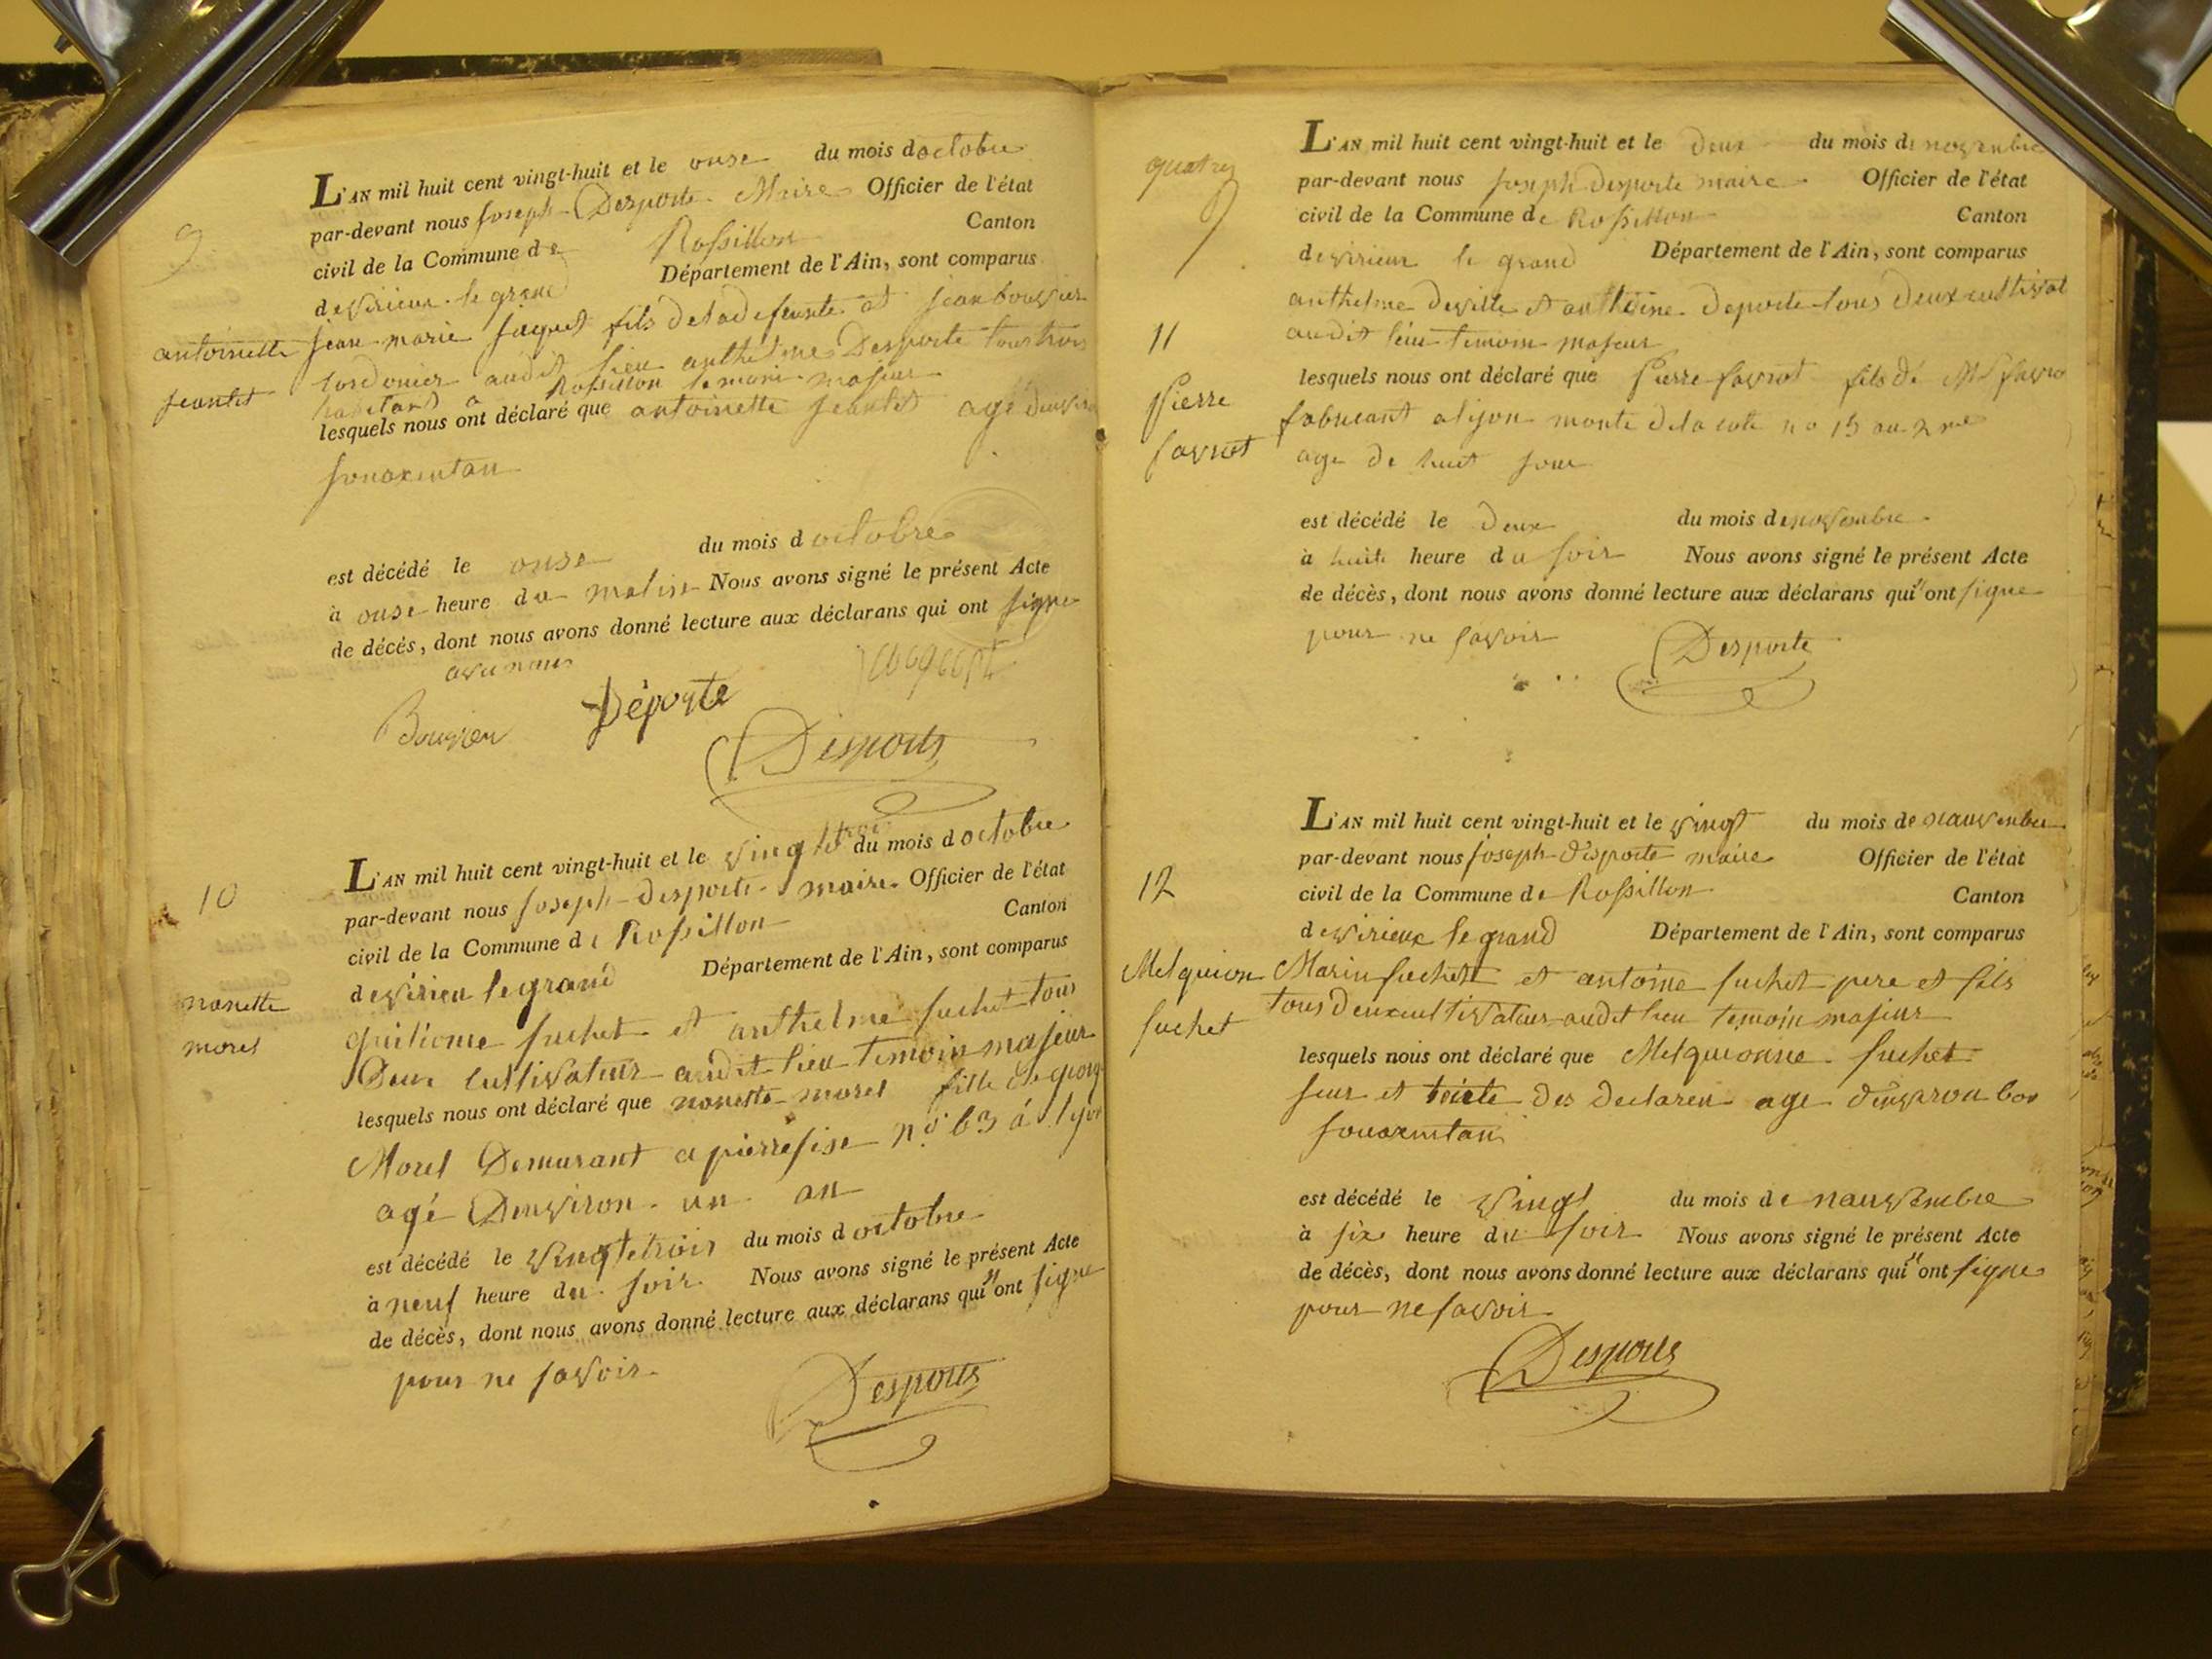 9
antoinette
jeantet
L'AN mil huit cent vingt-huit et le onse du mois doctobre
par-devant nous joseph Desporte Maire Officier de l'état
civil de la Commune de Rossillon Canton
devirieu le grand Département de l'Ain, sont comparus
jean marie jaquet fils de la defeunte et jean bouvier
cordonier audit lieu anthelme Desporte tous trois
habitans a Rossillon temoin majeur
lesquels nous ont déclaré que antoinette jeantet agé denviron
souaxentan
est décédé le onse du mois doctobre
à onse heure du matin Nous avons signé le présent Acte
de décès, dont nous avons donné lecture aux déclarans qui ont signe
avec nous
Bouvier Déporte
Desporte
10
nanette
morel
L'AN mil huit cent vingt-huit et le vingt trois du mois doctobre
par-devant nous joseph desporte maire Officier de l'état
civil de la Commune de Rossillon Canton
devirieu le grand Département de l'Ain, sont comparus
guilieme fuchet et anthelme fuchet tous
Deux cultivateur audit lieu temoin majeur
lesquels nous ont déclaré que nanette morel fille de
Morel Demurant a pierresise n° 63 á lyon
agé Denviron un an
est décédé le vingtetrois du mois doctobre
à neuf heure du soir Nous avons signé le présent Acte
de décès, dont nous avons donné lecture aux déclarans qui n ont signe
pour ne savoir
Desporte
11
Pierre
favriot
L'AN mil huit cent vingt-huit et le deux du mois de novembre
par-devant nous joseph desporte maire Officier de l'état
civil de la Commune de Rossillon Canton
devirieux le grand Département de l'Ain, sont comparus
anthelme deville et antheine deporte tous deux cultivat
audit lieu temoin majeur
lesquels nous ont déclaré que Pierre favriot fils de
fabricant a lyon monté de la cote no 15 au 2me
age de huit jour
est décédé le deux du mois de novembre
à huit heure du soir Nous avons signé le présent Acte
de décès, dont nous avons donné lecture aux déclarans qui n ont signe
pour ne savoir
Desporte
12
Melquion
fuchet
L'AN mil huit cent vingt-huit et le vingt du mois de nauvembre
par-devant nous joseph desporte maire Officier de l'état
civil de la Commune de Rossillon Canton
devirieux le grand Département de l'Ain, sont comparus
Marin fuchet et antoine fuchet pere et fils
tous deux cultivateur audit lieu temoin majeur
lesquels nous ont déclaré que Melquionne fuchet
seur et des declaren age denvirou
souaxentan
est décédé le vingt du mois de nauvembre
à six heure du soir Nous avons signé le présent Acte
de décès, dont nous avons donné lecture aux déclarans qui n ont signe
pour ne savoir
Desporte